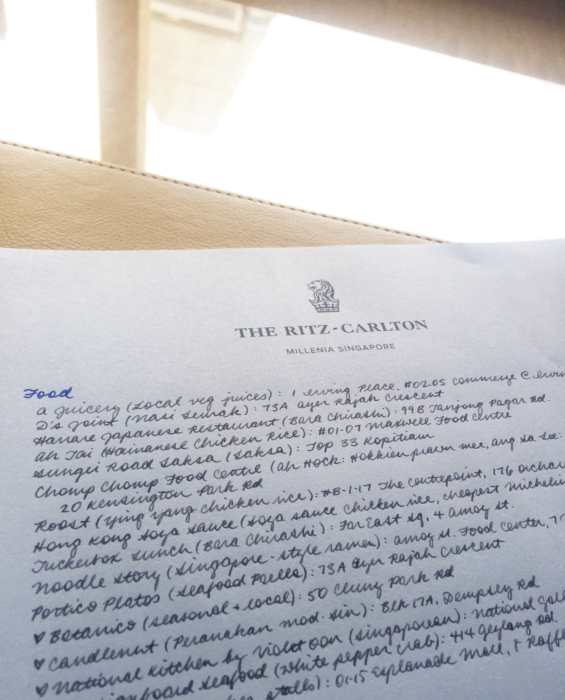 THE RITZ-CARLTON
MILLENIA SINGAPORE
Food
a juicery (local veg juices): 1 Irving Place, #02.05 commerze @
D's Joint (nasi lemak): 73A ayer Rajah Crescent
Hanare Japanese Restaurant (Bara Chirashi): 99B Tanjong Pagar Rd.
ah Tai (Hainanese Chicken Rice): #01-07 Maxwell Food Centre
Sungei Road Laksa (Laksa): Top 33 Kopitiam
Chomp Chomp Food Centre (ah Hock: Hokkien prawn mee, ang sa lee:
20 Kensington Park Rd
Roost (ying yang chicken rice): #B-1-17 The Centrepoint, 176 Orchard
Hong Kong Soya Sauce (soya sauce chicken rice, cheapest Michelin
Tuckerbox Lunch (Bara Chirashi): Far East Sq, 4 amoy St.
Noodle Story (Singapore-style ramen): amoy St. Food Center, 7
Portico Platos (seafood Paella): 73A ayer Rajah Crescent
♥ Botanico (seasonal + local): 50 Cluny Park Rd
♥ Candlenut (Peranakan mod. sin): Blk 17A, Dempsey Rd
♥ National Kitchen by Violet oon (Singaporean): National
Seafood (white pepper crab): 414 Geylang Rd.
stalls): 01-15 Esplanade Mall, 1